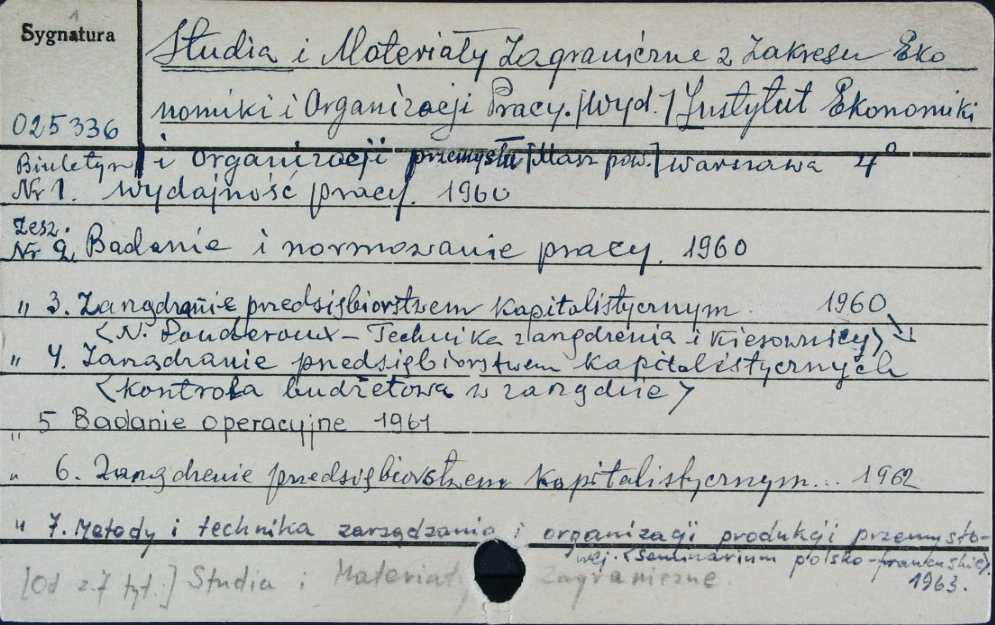 Sygnatura
Studia i Materiały Zagraniczne z Zakresu Eko
nomiki i Organizacji Pracy. [Wyd.] Instytut Ekonomiki
025336
i Organizacji przemysłu [Masz. pow.] Warszawa 4°
Biuletyn
Nr 1. Wydajność pracy. 1960
Zesz.
Nr 2. Badanie i normowanie pracy. 1960
" 3. Zarządzanie przedsiębiorstwem kapitalistycznym. 1960
<N. Technika zarządzenia i kierownicy>
" 4. Zarządzanie przedsiębiorstwem kapitalistycznych
<kontrola budżetowa w zarządzie>
" 5 Badanie operacyjne 1961
" 6. Zarządzenie przedsiębiorstwem kapitalistycznym... 1962
" 7. Metody i technika zarządzania i organizacji produkcji przemysło-
wej. <Seminarium polsko-francuskie>.
1963.
[Od z. 7 tyt.] Studia i Materiały Zagraniczne